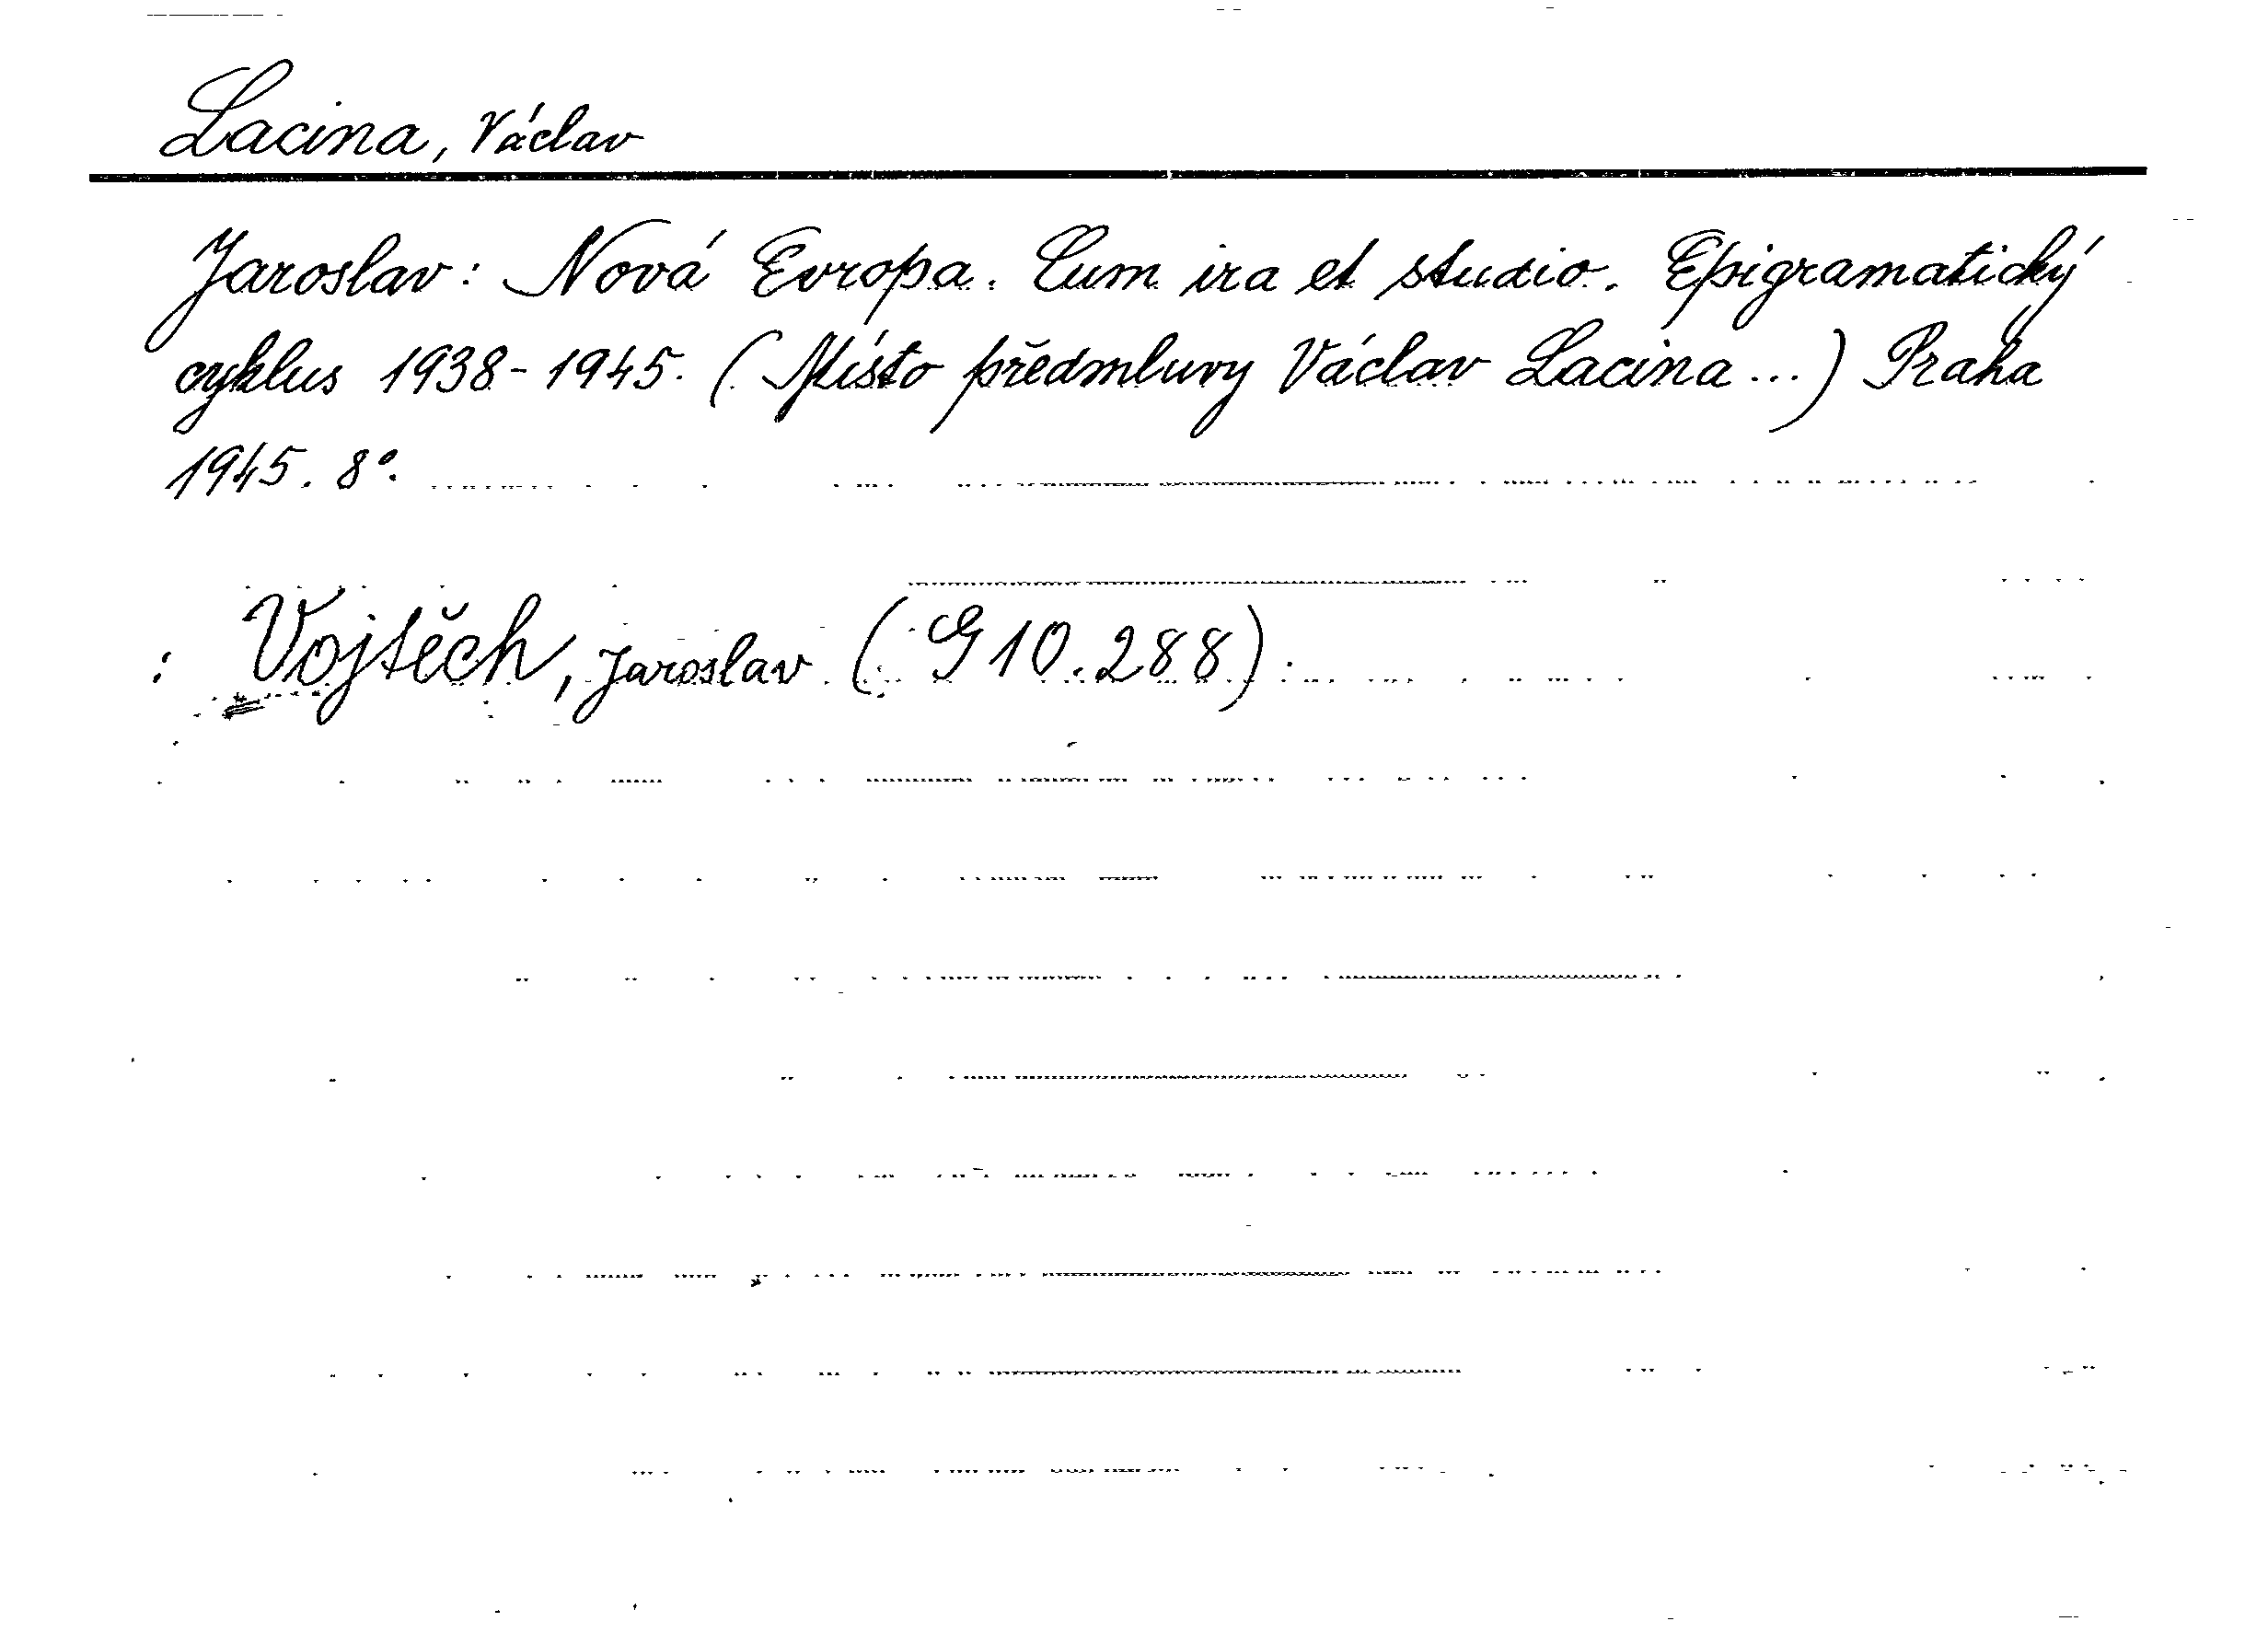 Lacina, Václav
Jaroslav: Nová Evropa. Cum ira et studio. Epigramatický
cyklus 1938-1945. (Místo předmluvy Václav Lacina...) Praha
1945. 8°.
: Vojtěch, Jaroslav (G 10.288).